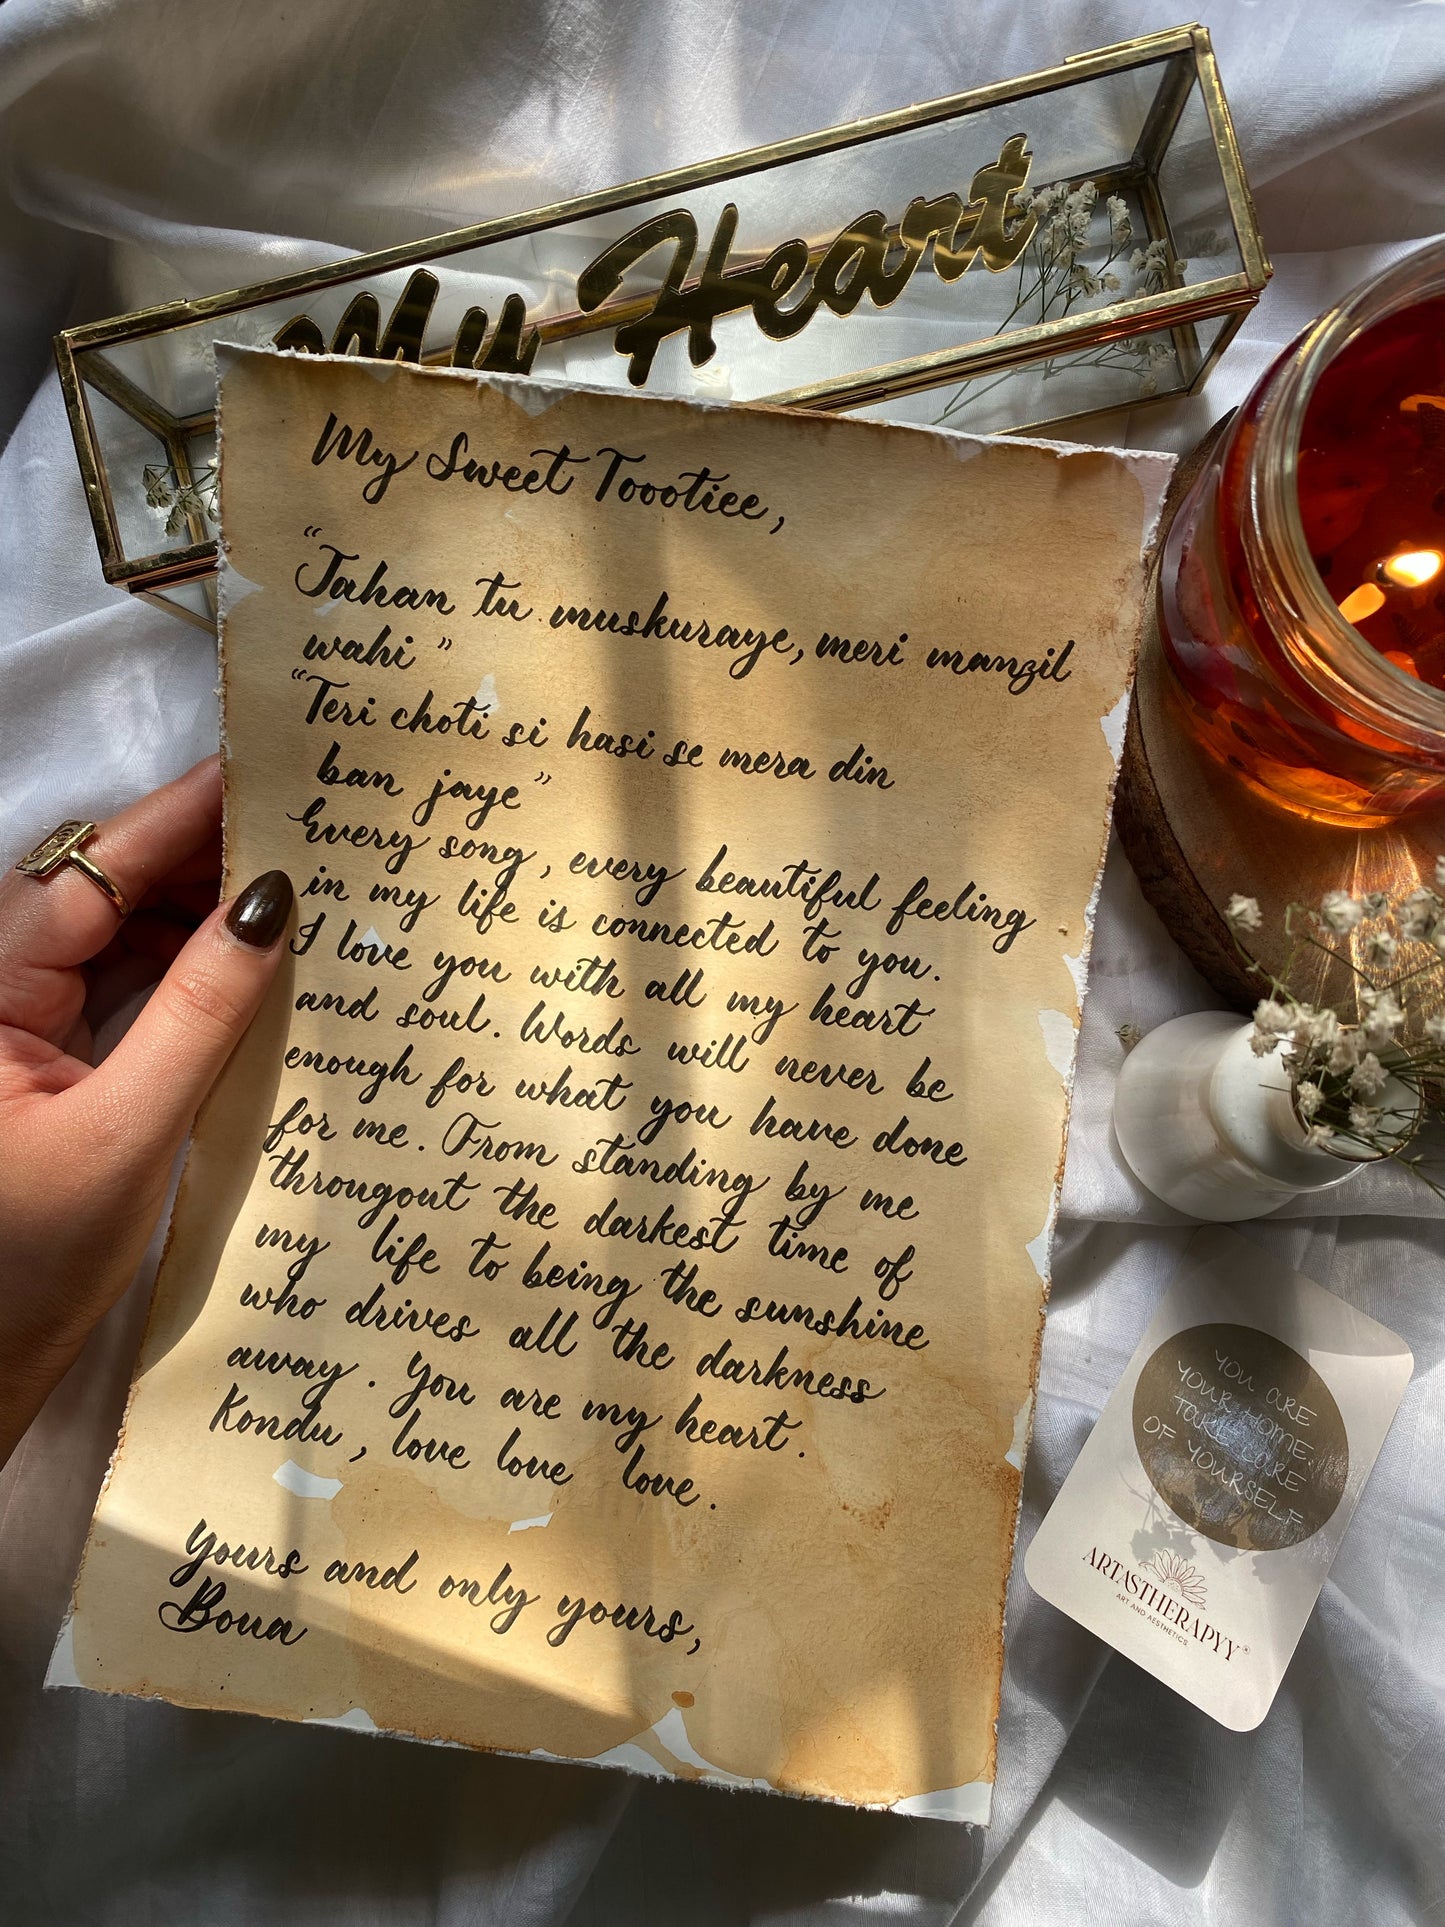 My Heart
My Sweet Toootiee,
"Jahan tu muskuraye, meri manzil
wahi"
"Teri choti si hasi se mera din
ban jaye"
Every song, every beautiful feeling
in my life is connected to you.
I love you with all my heart
and soul. Words will never be
enough for what you have done
for me. From standing by me
througout the darkest time of
my life to being the sunshine
who drives all the darkness
away. You are my heart.
Kondu, love love love.
Yours and only yours,
Boua
YOU ARE
YOUR HOME.
TAKE CARE
OF YOURSELF
ARTASTHERAPYY®
ART AND AESTHETICS